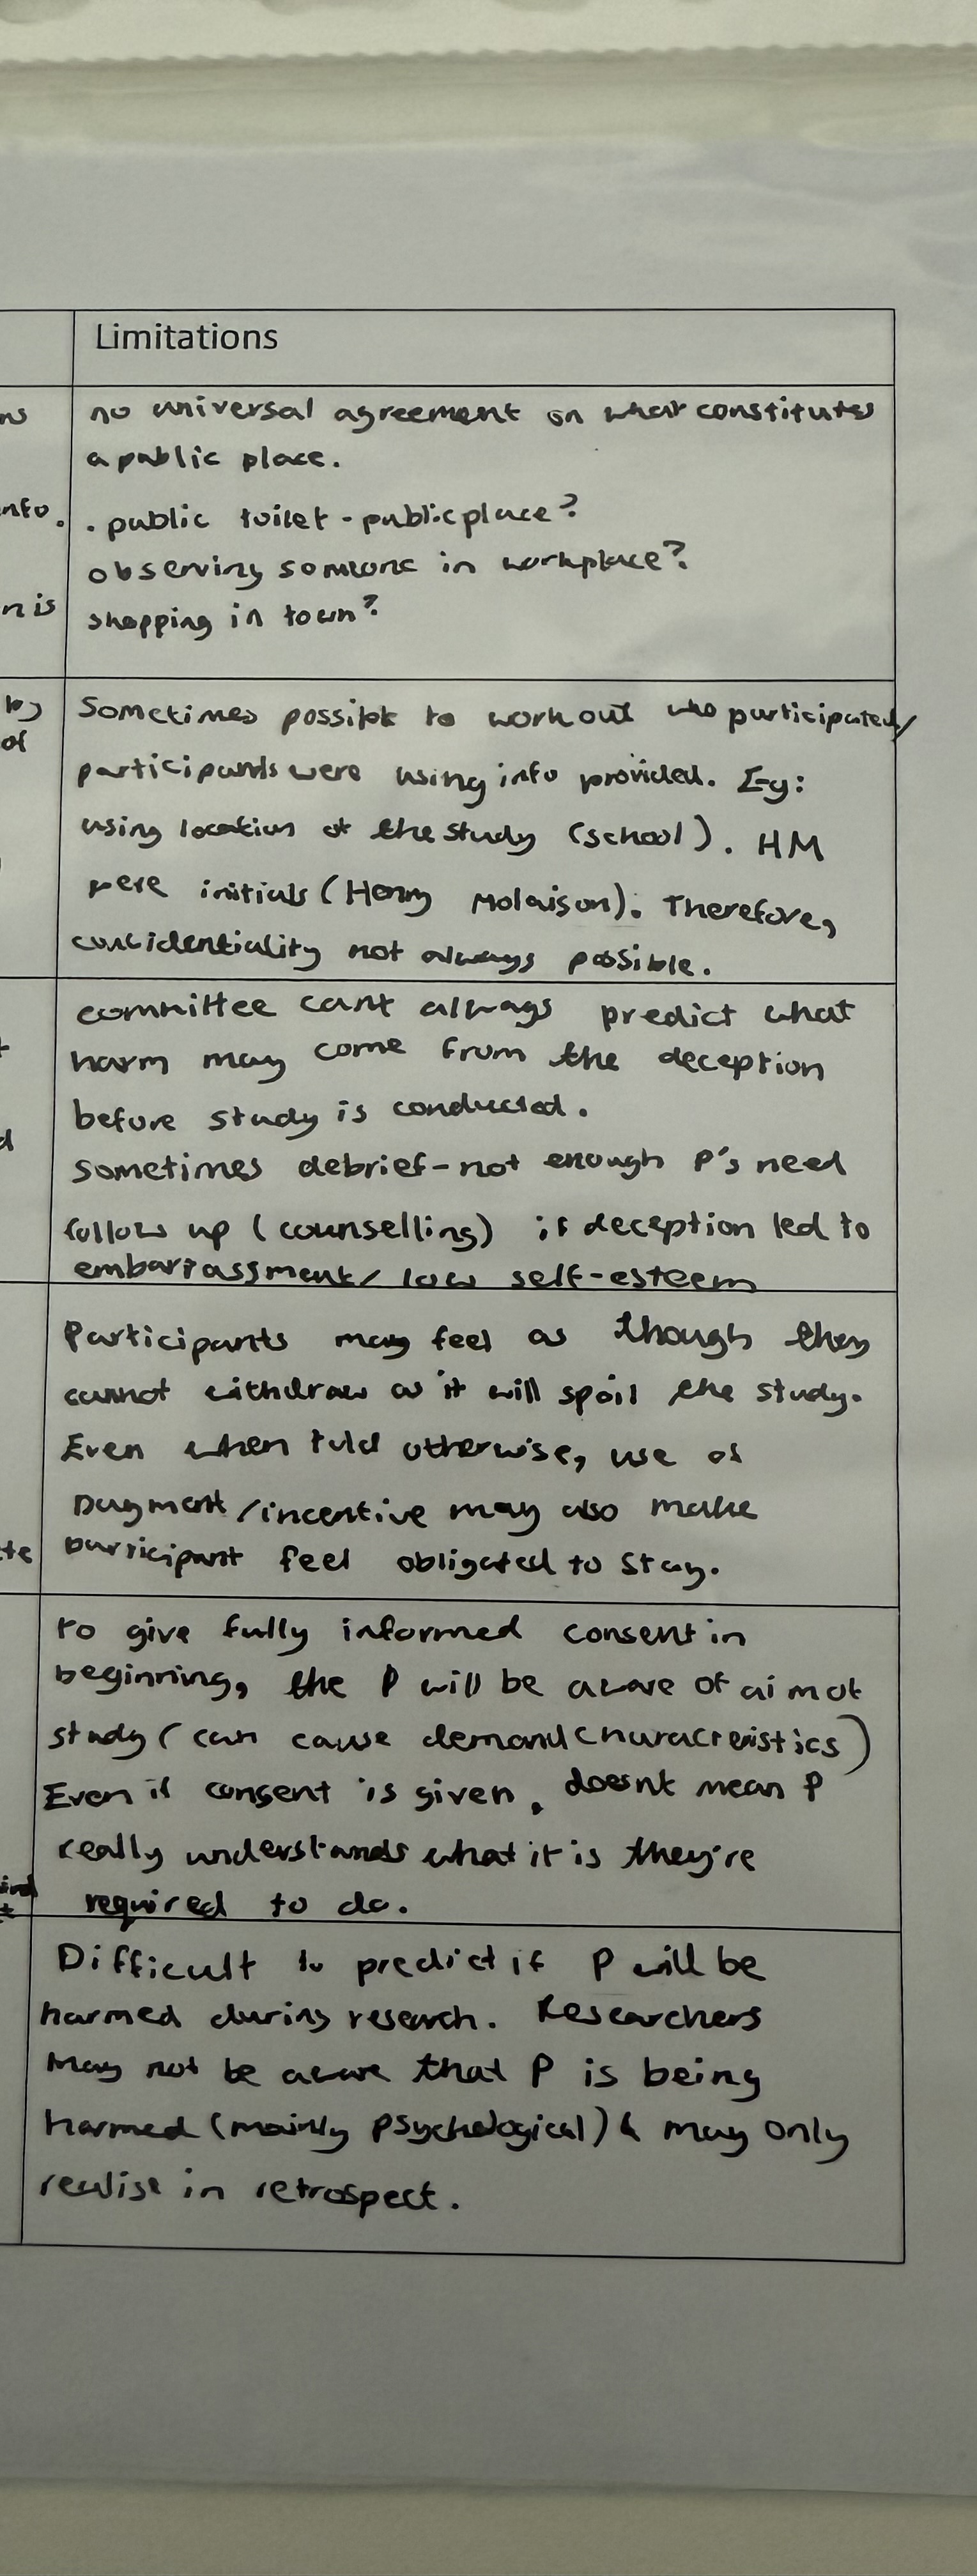 Limitations
ns
no universal agreement on what constitutes
a public place.
info.
. public toilet - public place?
observing someone in workplace?
n is
shopping in town?
by
Sometimes possible to work out who participated/
of
participants were using info provided. Eg:
using location of the study (school). HM
were initials (Henry Molaison). Therefore,
confidentiality not always possible.
committee cant always predict what
harm may come from the deception
before study is conducted.
d
sometimes debrief - not enough P's need
follow up (counselling) if deception led to
embarrassment/ low self-esteem
Participants may feel as though they
cannot withdraw as it will spoil the study.
Even when told otherwise, use of
payment/incentive may also make
te
participant feel obligated to stay.
to give fully informed consent in
beginning, the P will be aware of aim of
study (can cause demand characteristics)
Even if consent is given, doesnt mean P
really understands what it is they're
required to do.
Difficult to predict if P will be
harmed during research. Researchers
may not be aware that P is being
harmed (mainly psychological) & may only
realise in retrospect.